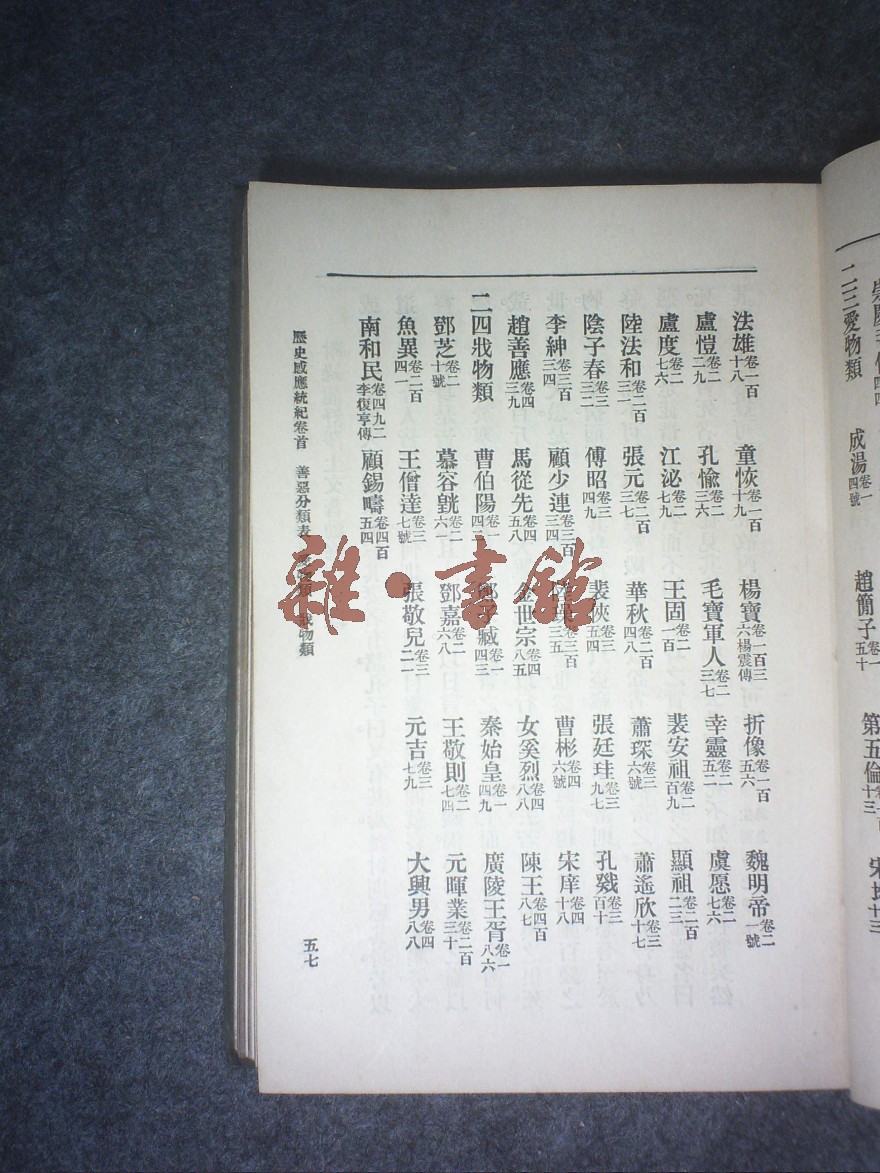 二三愛物類 成湯卷一四號 趙簡子卷一五十 第五倫
法雄卷一百十八 童恢卷一百十九 楊寶卷一百三六楊震傳 折像卷一百五六 魏明帝卷二一號
盧愷卷二二九 孔愉卷二三六 毛寶軍人卷二三七 幸靈卷二五二 虞愿卷二七六
盧度卷二七六 江泌卷二七九 王固卷二一百 裴安祖卷二百九 顯祖卷二百二三
陸法和卷二百三一 張元卷二百三七 華秋卷二百四八 蕭琛卷三六號 蕭遙欣卷三十七
陰子春卷三三二 傅昭卷三四九 裴俠卷三五四 張廷珪卷三九七 孔戣卷三百十
李紳卷三百三四 顧少連卷三百三四 卷三百三五 曹彬卷四六號 宋庠卷四十八
趙善應卷四三九 馬從先卷四五八 金世宗卷四八五 女奚烈卷四八八 陳王卷四百八七
二四戕物類 曹伯陽卷一四三 子臧卷一四三 秦始皇卷一四九 廣陵王胥卷一八六
鄧芝卷二十號 慕容皝卷二六一 鄧嘉卷二六八 王敬則卷二七四 元暉業卷二百三十
魚異卷二百四一 王僧達卷三七號 張敬兒卷三二一 元吉卷三七九 大興男卷四八八
南和民卷四九二李復亨傳 顧錫疇卷四百五四
歷史感應統紀卷首 善惡分類表 戕物類 五七
雜·書館